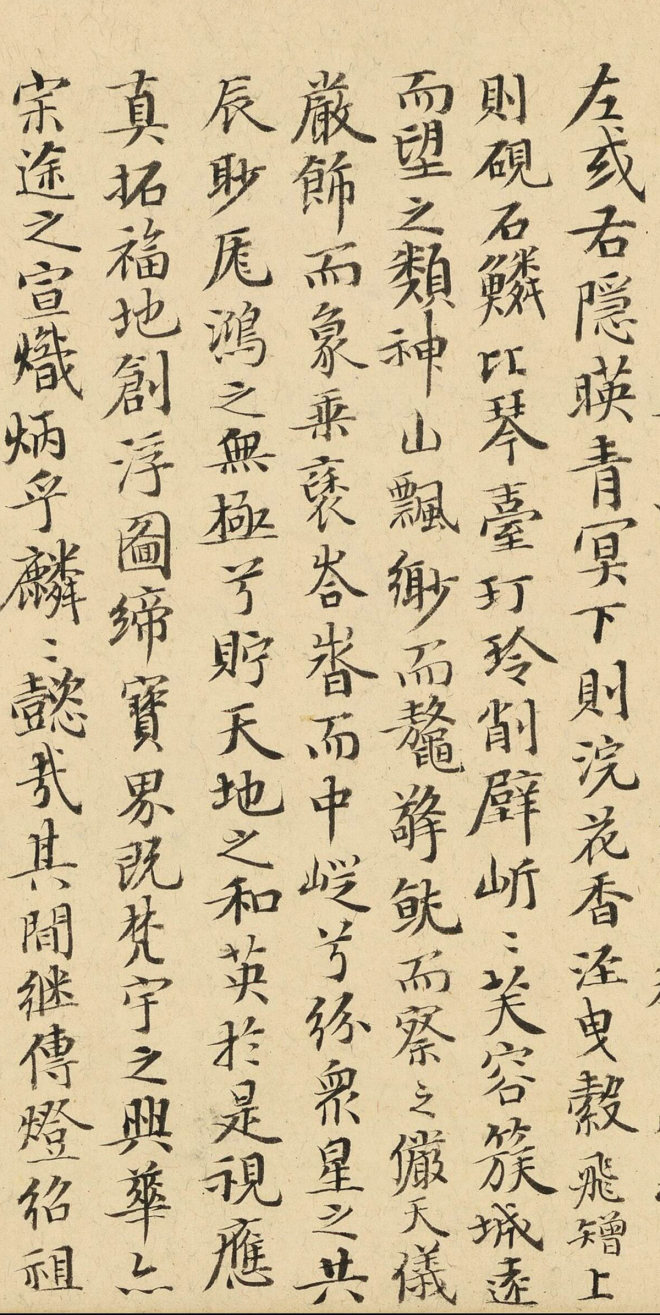 左或右隠暎青冥下則浣花香洷曳縠飛矰上
則硯石鱗比琴臺玎玲削壁岓〻芙容簇城遠
而望之類神山飄緲而鼇擎䏻而察之儼天儀
嚴飾而象乗褒峇㟙而中嵷兮紛衆星之共
辰眇厖鴻之無極兮貯天地之和英於是視應
真拓福地創浮圖締寶界既梵宇之興華亦
宗途之宣熾炳乎麟〻懿㢤其間継傳燈紹祖